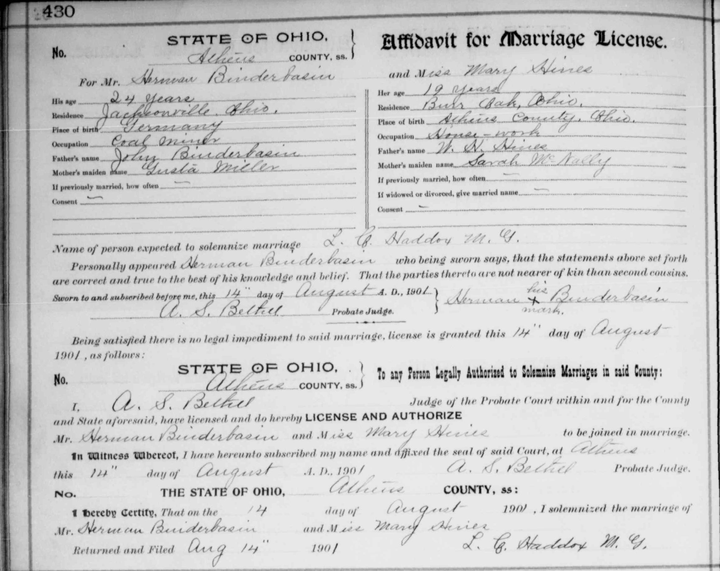 430
STATE OF OHIO,
No. Athens COUNTY, ss.
For Mr. Herman Binderbasin
His age 24 years
Residence Jacksonville, Ohio,
Place of birth Germany
Occupation Coal Miner
Father's name John Binderbasin
Mother's maiden name Gusta Miller
If previously married, how often —
Consent —
Affidavit for Marriage License.
and Miss Mary Hines
Her age 19 years
Residence Burr Oak, Ohio,
Place of birth Athens County, Ohio.
Occupation House-work
Father's name W. H. Hines
Mother's maiden name Sarah McNally
If previously married, how often —
If widowed or divorced, give married name —
Consent —
Name of person expected to solemnize marriage L. C. Haddox M. G.
Personally appeared Herman Binderbasin who being sworn says, that the statements above set forth
are correct and true to the best of his knowledge and belief. That the parties thereto are not nearer of kin than second cousins.
Sworn to and subscribed before me, this 14" day of August A. D., 1901
A. S. Bethel Probate Judge.
his
Herman x Binderbasin
mark.
Being satisfied there is no legal impediment to said marriage, license is granted this 14" day of August
1901, as follows:
STATE OF OHIO,
No. Athens COUNTY, ss.
To any Person Legally Authorized to Solemnize Marriages in said County:
I, A. S. Bethel Judge of the Probate Court within and for the County
and State aforesaid, have licensed and do hereby LICENSE AND AUTHORIZE
Mr. Herman Binderbasin and Miss Mary Hines to be joined in marriage.
In Witness Whereof, I have hereunto subscribed my name and affixed the seal of said Court, at Athens
this 14" day of August A. D., 1901 A. S. Bethel Probate Judge.
No. THE STATE OF OHIO, Athens COUNTY, ss:
I Hereby Certify, That on the 14 day of August 1901, I solemnized the marriage of
Mr. Herman Binderbasin and Miss Mary Hines
Returned and Filed Aug 14" 1901 L. C. Haddox M. G.